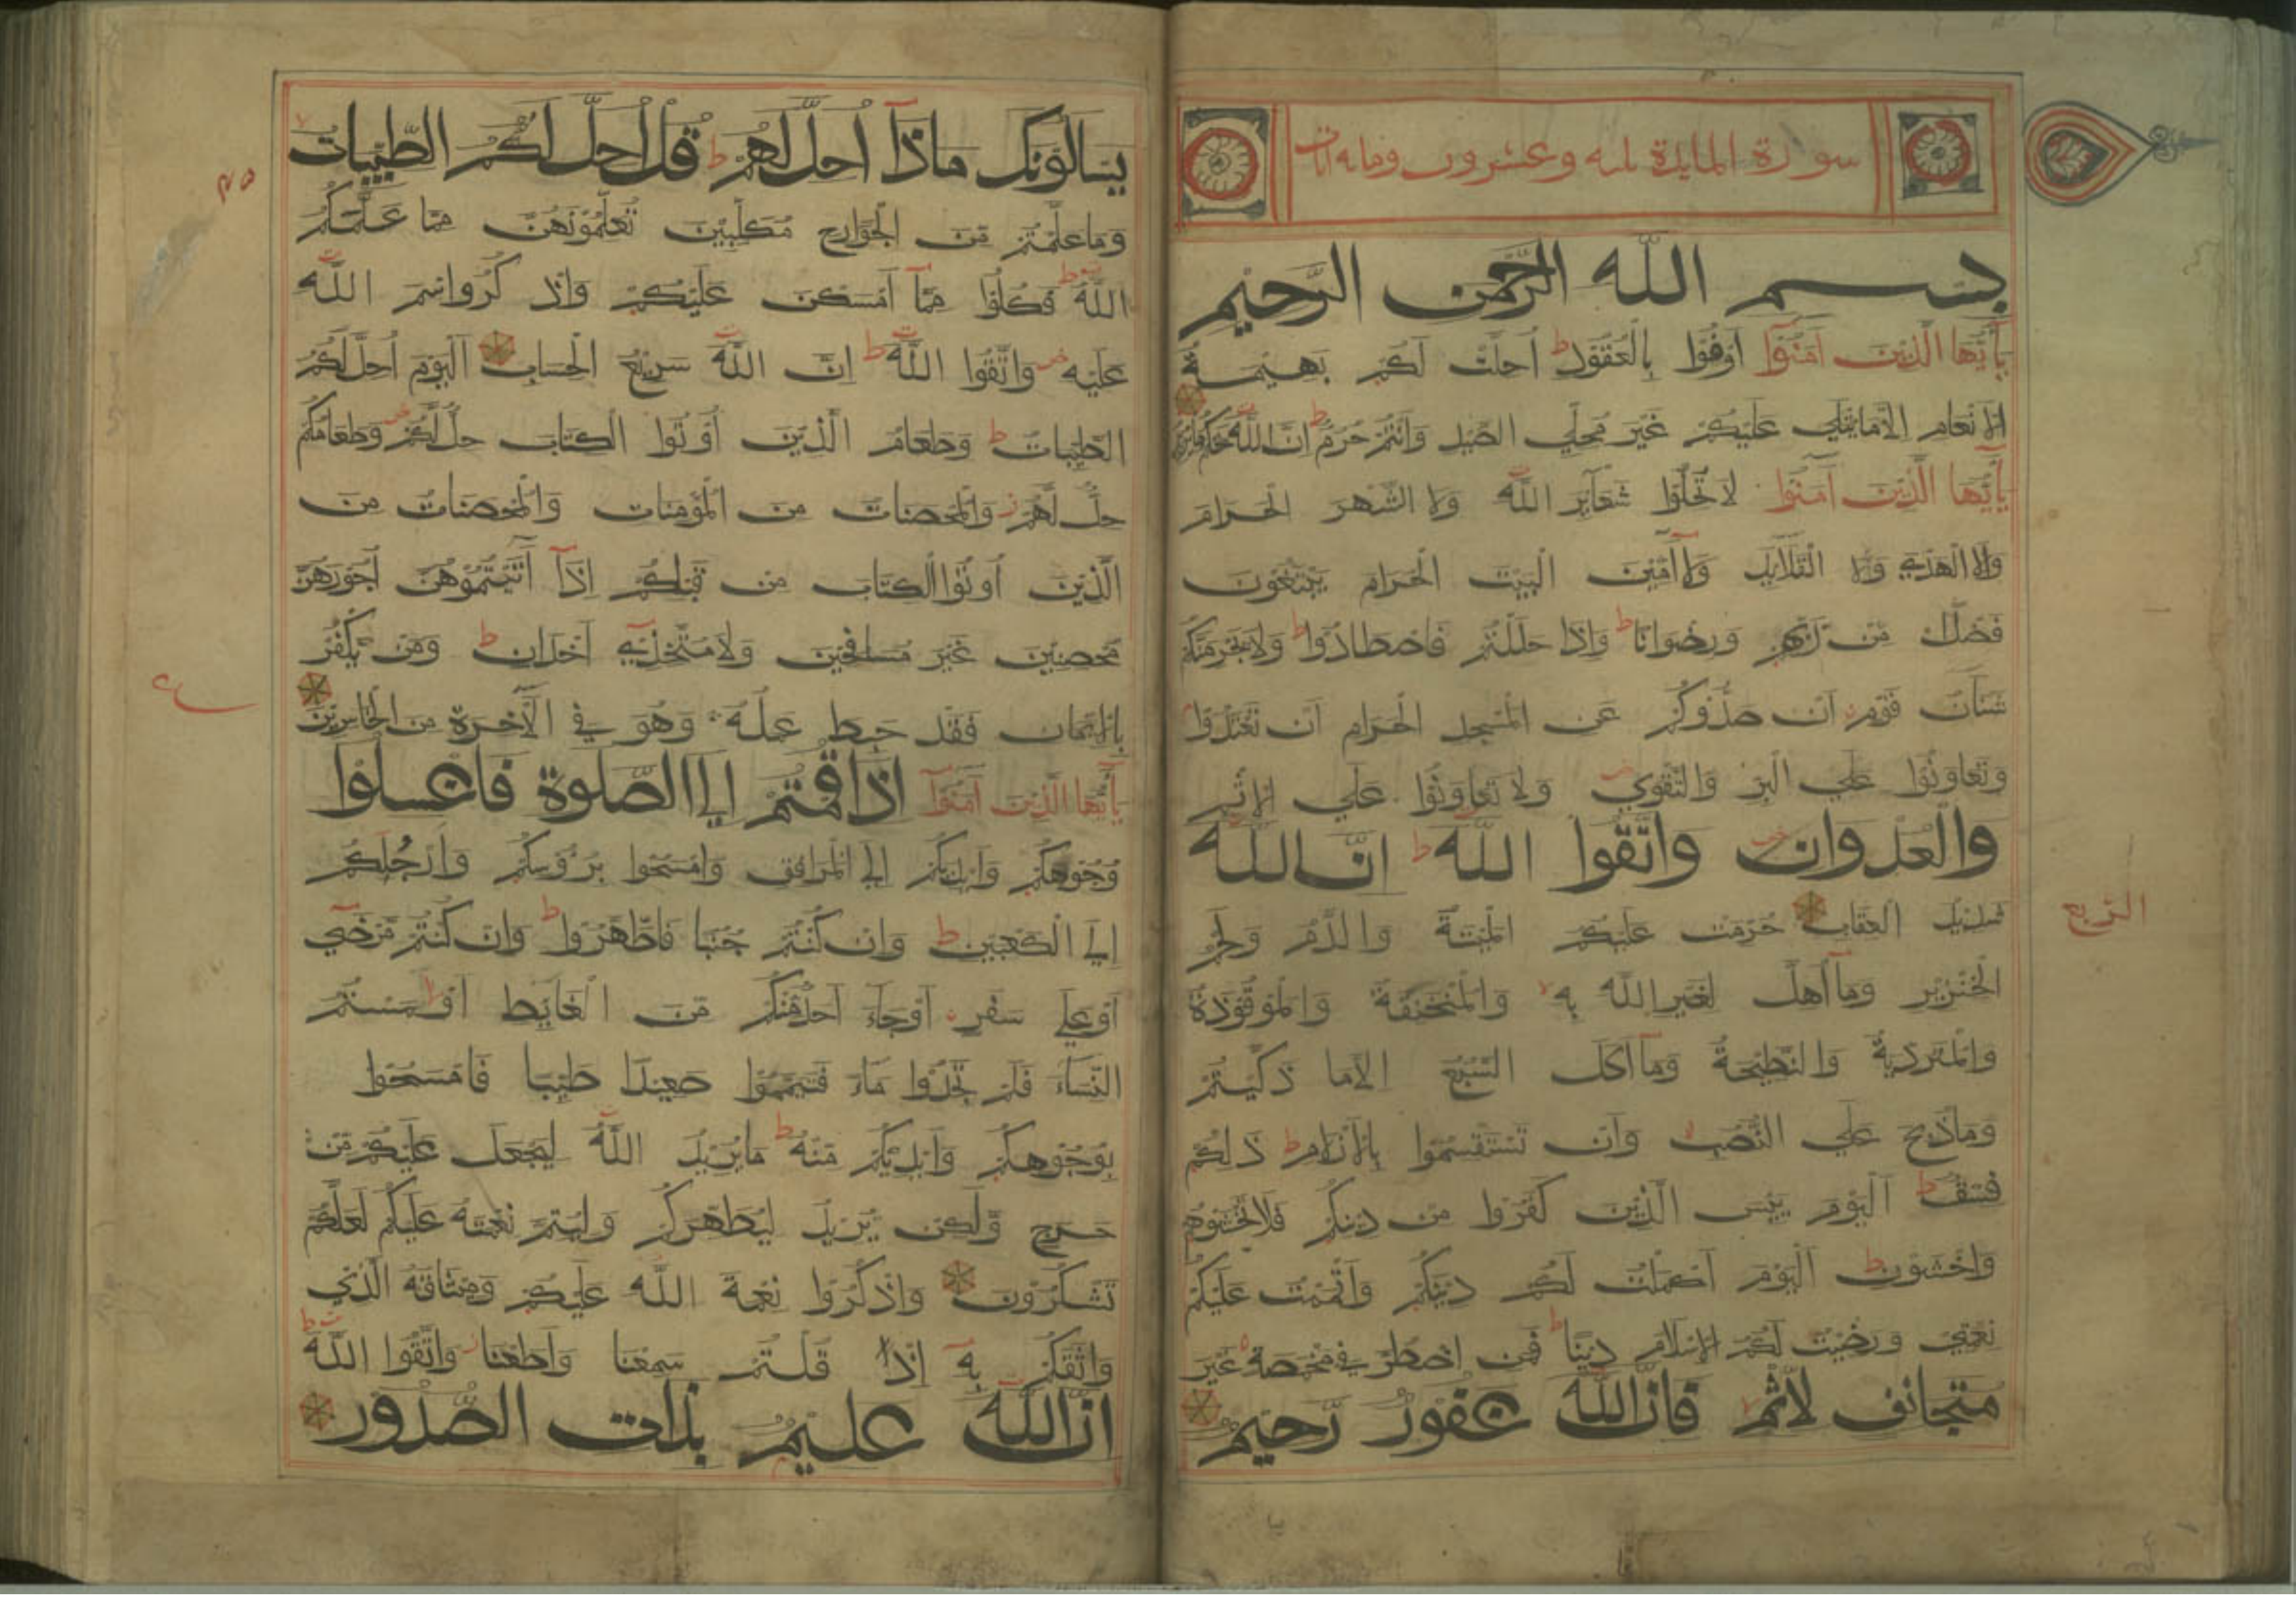 سورة المايدة مايه وعشرون
بسم الله الرحمن الرحيم
يأَيُّهَا الَّذِينَ آمَنُوا أَوْفُوا بِالْعُقُودِ ط أُحِلَّتْ لَكُمْ بَهِيمَةُ
الانْعَامِ الَّا مَا يُتْلَي عَلَيْكُمْ غَيْرَ مُحِلِّي الصَّيْدِ وَأَنْتُمْ حُرُمٌ ط انَّ اللَّهَ يَحْكُمُ مَا يُرِيدُ
يأَيُّهَا الَّذِينَ آمَنُوا لَا تُحِلُّوا شَعَآيِرَ اللَّهِ وَلَا الشَّهْرَ الْحَرَامَ
وَلَا الْهَدْيَ وَلَا الْقَلَآيِدَ وَلَا آمِّينَ الْبَيْتَ الْحَرَامَ يَبْتَغُونَ
فَضْلًا مِّن رَّبِّهِمْ وَرِضْوَانًا ط وَإِذَا حَلَلْتُمْ فَاصْطَادُوا ط وَلَا يَجْرِمَنَّكُمْ
شَنَآنُ قَوْمٍ أَن صَدُّوكُمْ عَنِ الْمَسْجِدِ الْحَرَامِ أَن تَعْتَدُوا
وَتَعَاوَنُوا عَلَي الْبِرِّ وَالتَّقْوَي وَلَا تَعَاوَنُوا عَلَي الاثْمِ
والْعُدْوَانِ وَاتَّقُوا اللَّه ط انَّ اللَّه
شَدِيدُ الْعِقَابِ حُرِّمَتْ عَلَيْكُمُ الْمَيْتَةُ وَالدَّمُ وَلَحْمُ
الْخِنْزِيرِ وَمَآ أُهِلَّ لِغَيْرِ اللَّهِ بِهِ وَالْمُنْخَنِقَةُ وَالْمَوْقُوذَةُ
وَالْمُتَرَدِّيَةُ وَالنَّطِيحَةُ وَمَآ أَكَلَ السَّبُعُ الَّا مَا ذَكَّيْتُمْ
وَمَا ذُبِحَ عَلَي النُّصُبِ وَأَن تَسْتَقْسِمُوا بِالْأَزْلَامِ ط ذَلِكُمْ
فِسْقٌ ط الْيَوْمَ يَئِسَ الَّذِينَ كَفَرُوا مِن دِينِكُمْ فَلَا تَخْشَوْهُمْ
وَاخْشَوْنِ ط الْيَوْمَ أَكْمَلْتُ لَكُمْ دِينَكُمْ وَأَتْمَمْتُ عَلَيْكُمْ
نِعْمَتِي وَرَضِيتُ لَكُمُ الاسْلَامَ دِينًا ط فَمَنِ اضْطُرَّ فِي مَخْمَصَةٍ غَيْرَ
مُتَجَانِفٍ لِاثْمٍ فَانَّ اللَّهَ غَفُورٌ رَّحِيمٌ
الربع
يَسْأَلُونَكَ مَاذَآ أُحِلَّ لَهُمْ ط قُلْ أُحِلَّ لَكُمُ الطَّيِّبَاتُ
وَمَا عَلَّمْتُمْ مِّنَ الْجَوَارِحِ مُكَلِّبِينَ تُعَلِّمُونَهُنَّ مِمَّا عَلَّمَكُمُ
اللَّهُ ط فَكُلُوا مِمَّآ أَمْسَكْنَ عَلَيْكُمْ وَاذْكُرُوا اسْمَ اللَّهِ
عَلَيْهِ وَاتَّقُوا اللَّهَ ط انَّ اللَّهَ سَرِيعُ الْحِسَابِ الْيَوْمَ أُحِلَّ لَكُمُ
الطَّيِّبَاتُ ط وَطَعَامُ الَّذِينَ أُوتُوا الْكِتَابَ حِلٌّ لَّكُمْ وَطَعَامُكُمْ
حِلٌّ لَّهُمْ وَالْمُحْصَنَاتُ مِنَ الْمُؤْمِنَاتِ وَالْمُحْصَنَاتُ مِنَ
الَّذِينَ أُوتُوا الْكِتَابَ مِن قَبْلِكُمْ إِذَآ آتَيْتُمُوهُنَّ أُجُورَهُنَّ
مُحْصِنِينَ غَيْرَ مُسَافِحِينَ وَلَا مُتَّخِذِي أَخْدَانٍ ط وَمَن يَكْفُرْ
بِالايمَانِ فَقَدْ حَبِطَ عَمَلُهُ وَهُوَ فِي الْآخِرَةِ مِنَ الْخَاسِرِينَ
يأَيُّهَا الَّذِينَ آمَنُوا اذَا قُمْتُمْ الَي الصَّلوةِ فَاغْسِلُوا
وُجُوهَكُمْ وَأَيْدِيَكُمْ الَي الْمَرَافِقِ وَامْسَحُوا بِرُؤُسِكُمْ وَأَرْجُلَكُمْ
الَي الْكَعْبَيْنِ ط وَان كُنْتُمْ جُنُبًا فَاطَّهَّرُوا ط وَان كُنْتُمْ مَّرْضَي
أَوْ عَلَي سَفَرٍ أَوْ جَآءَ أَحَدٌ مِّنْكُمْ مِّنَ الْغَآيِطِ أَوْ لمَسْتُمُ
النِّسَآءَ فَلَمْ تَجِدُوا مَآءً فَتَيَمَّمُوا صَعِيدًا طَيِّبًا فَامْسَحُوا
بِوُجُوهِكُمْ وَأَيْدِيكُمْ مِّنْهُ ط مَا يُرِيدُ اللَّهُ لِيَجْعَلَ عَلَيْكُمْ مِّنْ
حَرَجٍ وَّلَكِن يُّرِيدُ لِيُطَهِّرَكُمْ وَلِيُتِمَّ نِعْمَتَهُ عَلَيْكُمْ لَعَلَّكُمْ
تَشْكُرُونَ وَاذْكُرُوا نِعْمَةَ اللَّهِ عَلَيْكُمْ وَمِيثَاقَهُ الَّذِي
وَاثَقَكُمْ بِهِ إِذْ قُلْتُمْ سَمِعْنَا وَأَطَعْنَا وَاتَّقُوا اللَّهَ ط
انَّ اللَّهَ عَلِيمٌ بِذَاتِ الصُّدُورِ